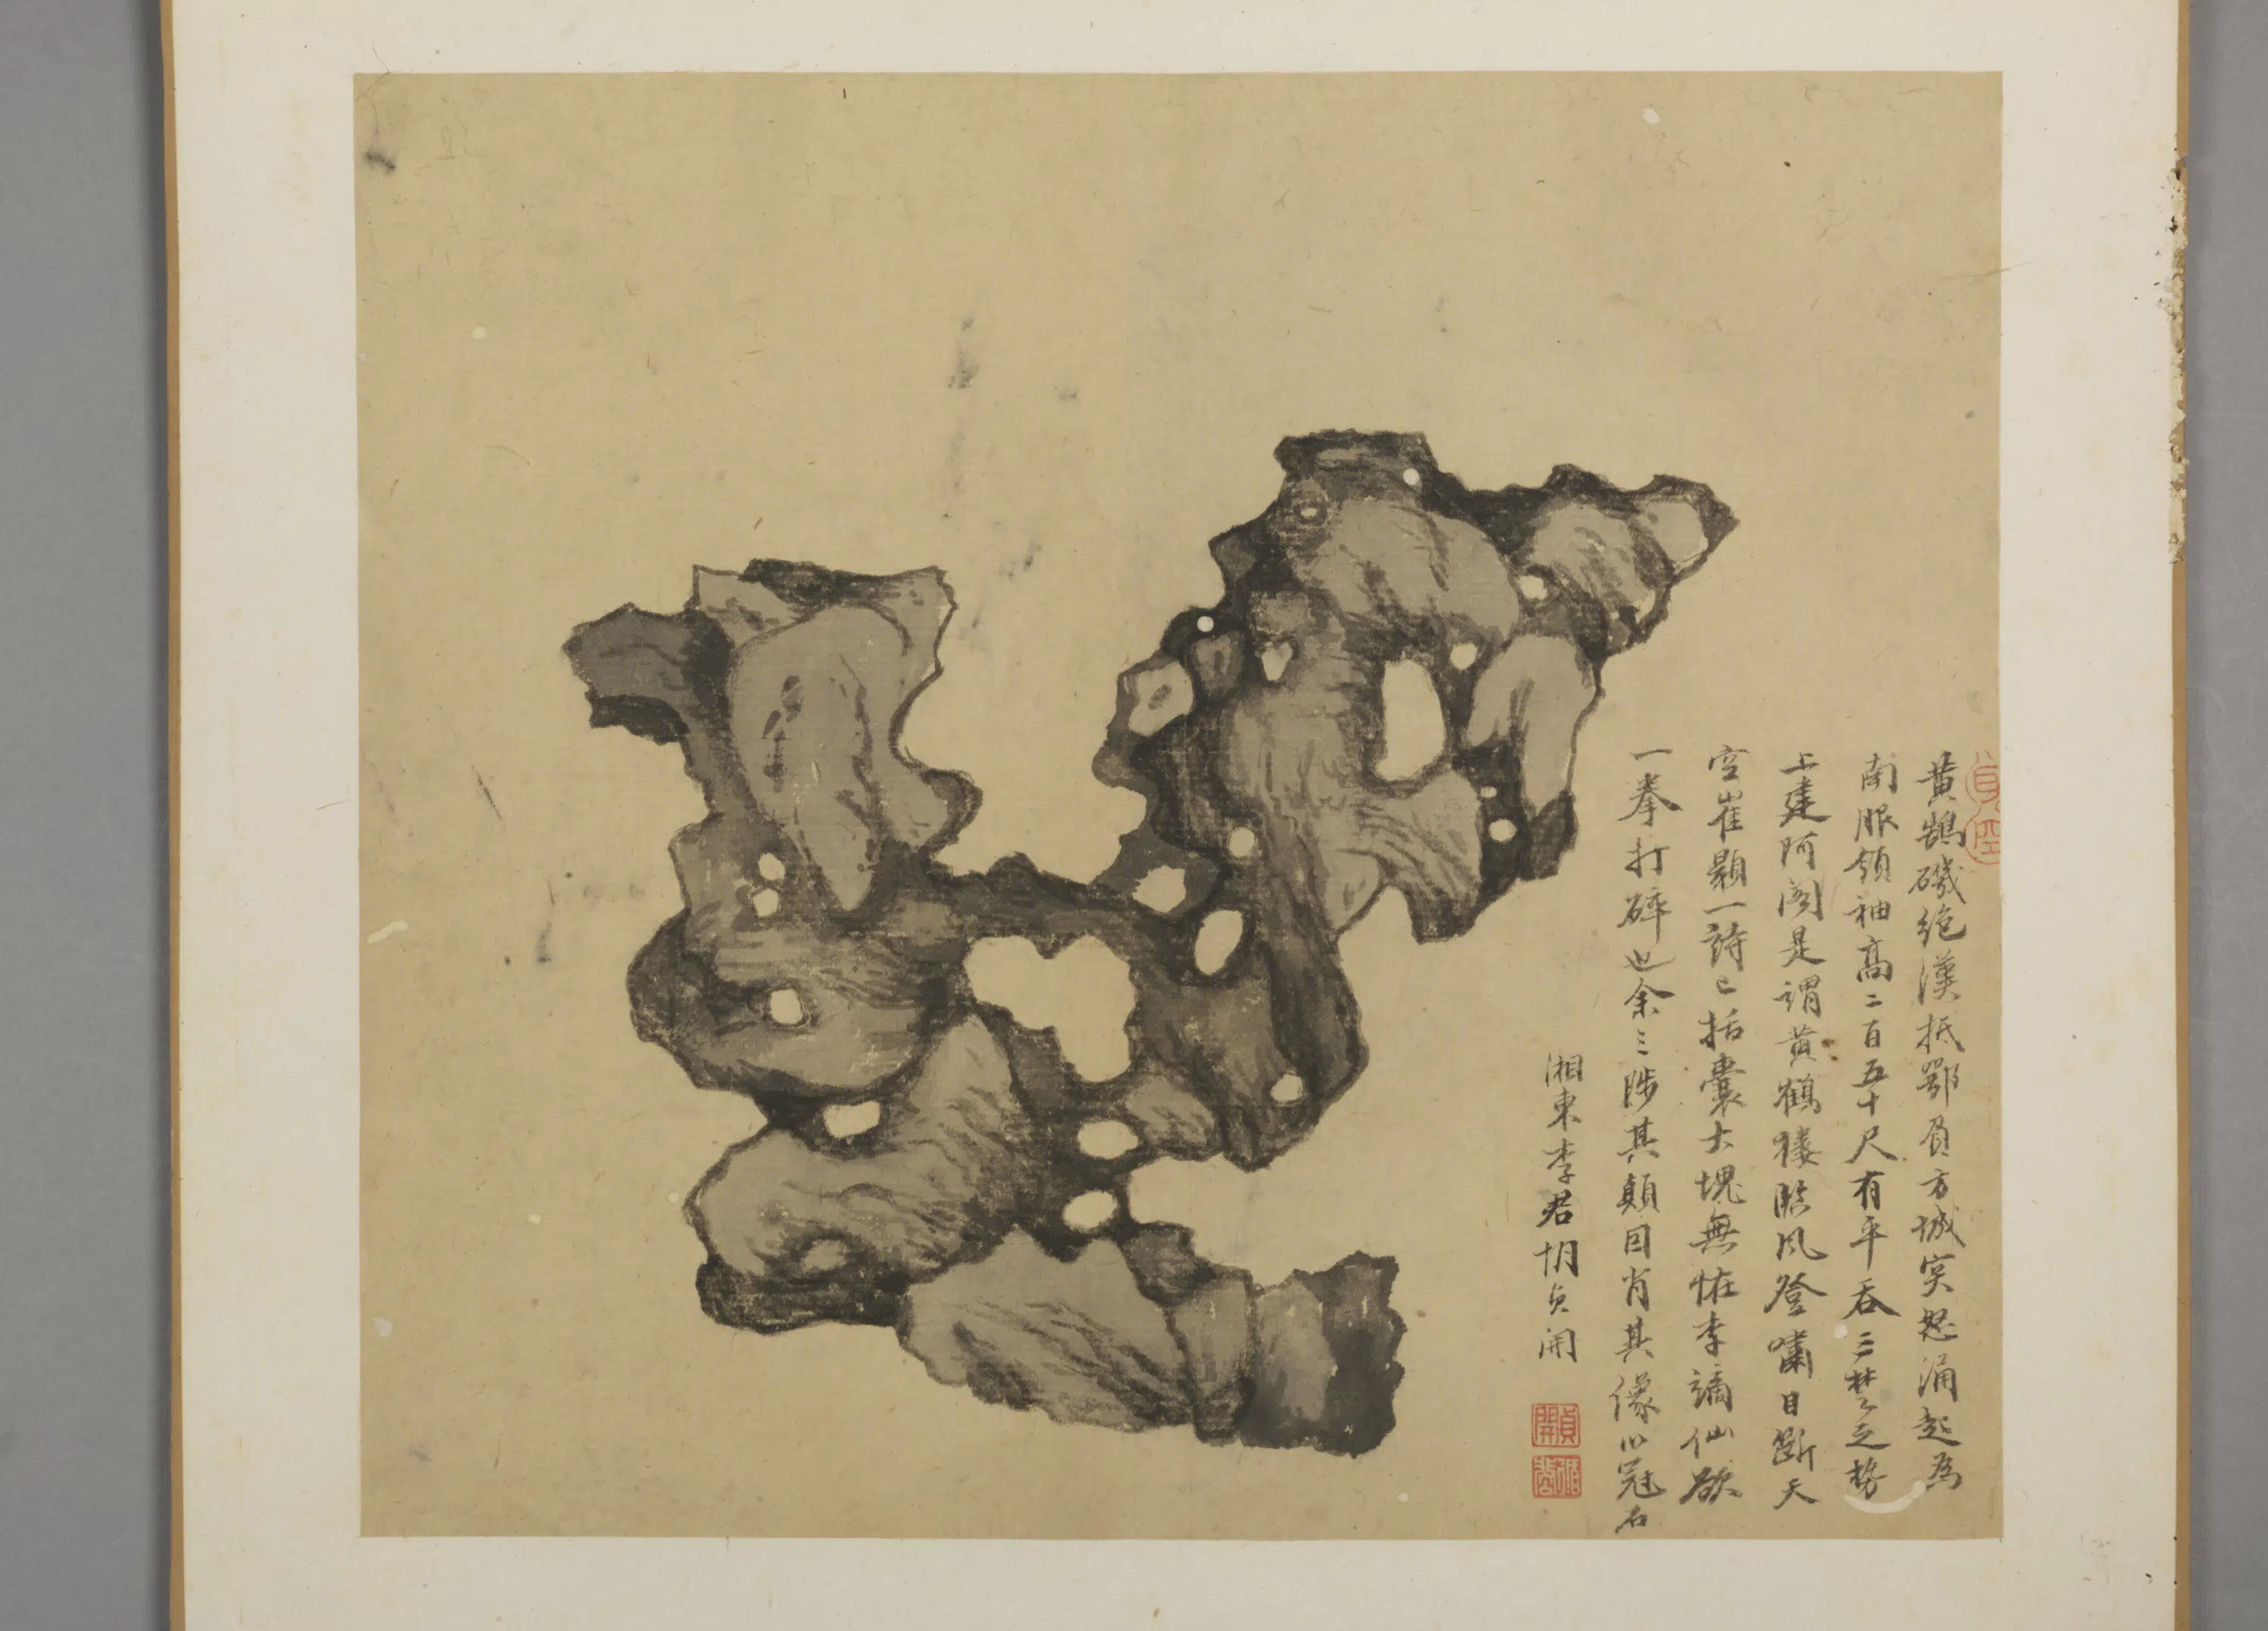 黄鵠磯絶漢抵鄂負方城突怒涌起為
南服領袖高二百五十尺有平吞三楚之勢
上建阿閣是謂黄鶴樓臨風登嘯目斷天
空崔顥一詩已括囊大塊無怪李謫仙欲
一拳打碎也余三陟其顛因肖其像以冠石
湘東李君胡貞開
貞開